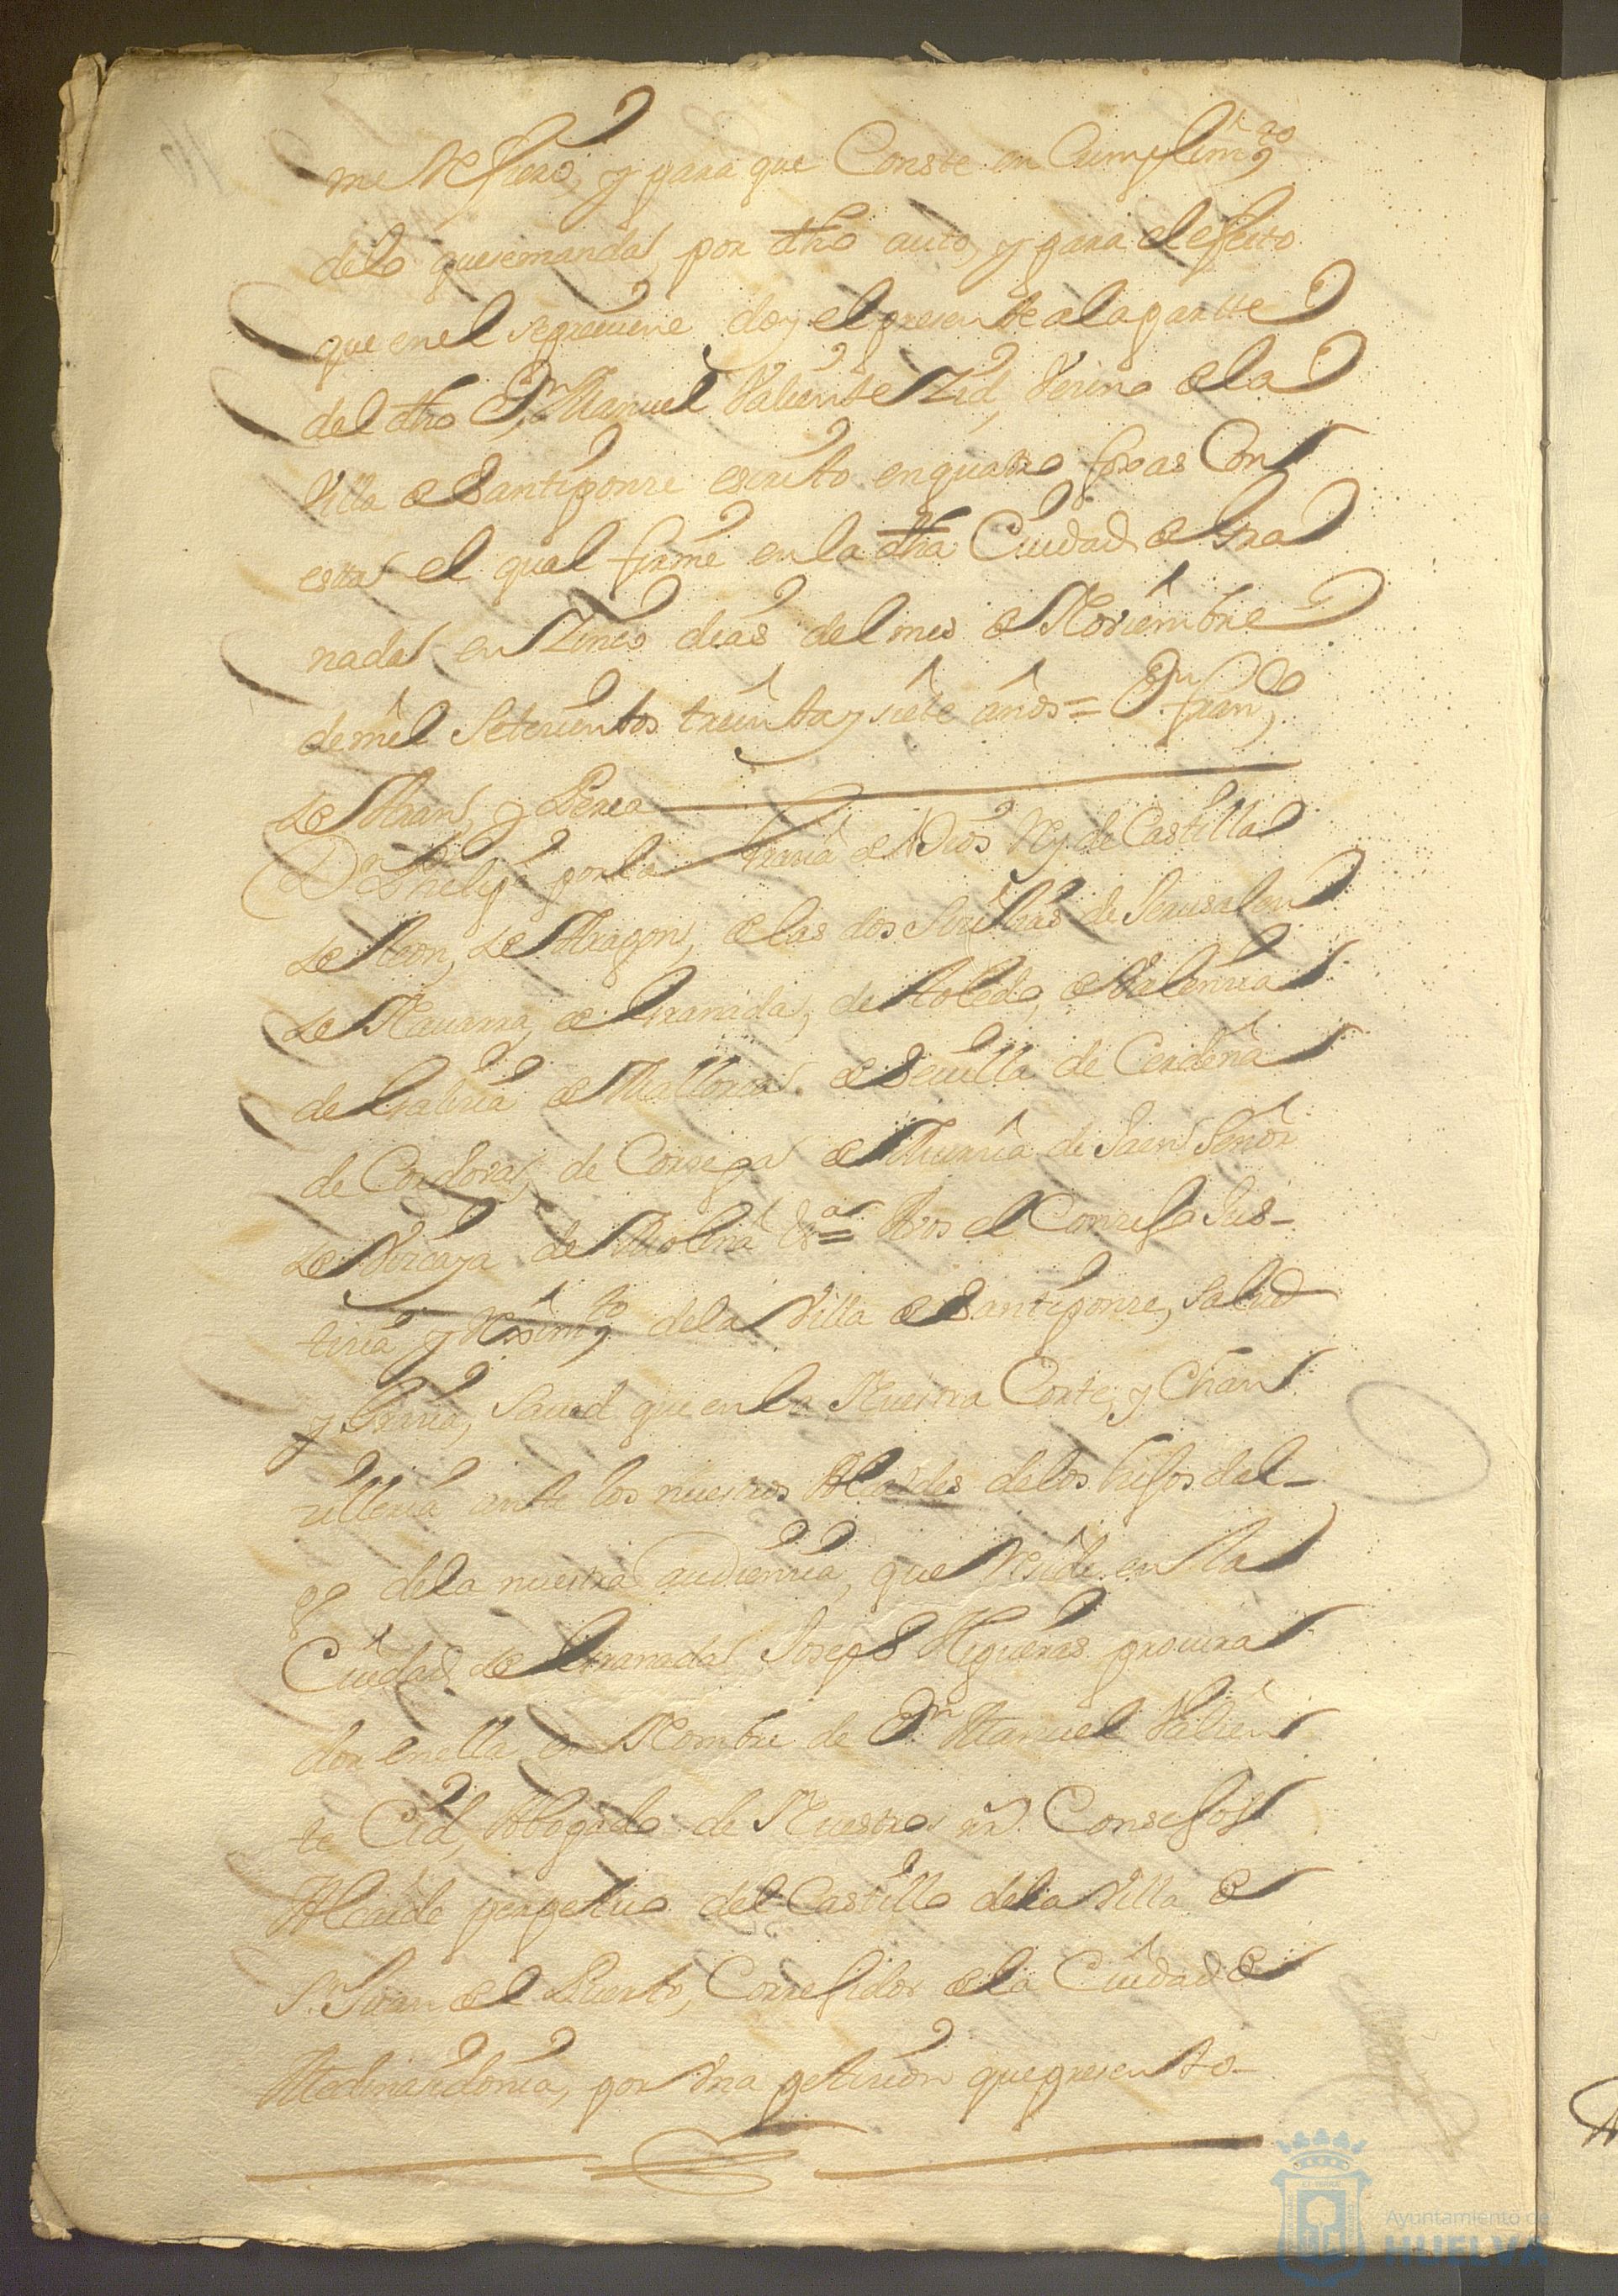 me Refiero, y para que Conste en Cumplim.to
delo quesemanda, por dho auto, y para el efecto
que enel sepreuiene doy el presente alapartte
del dho D.n Manuel Valiente Zid, Vezino de la
Villa de Santiponze escrito enquatro foxas Con
esta el qual firmé en la dha Ciudad de Gra
nada en Zinco dias del mes de Noviembre
demil Setezientos treinta y siete años = D.n Fran.co
de Aran, y Perea
D.n Phelipe por la Grazia de Dios Rey de Castilla
de Leon, de Aragon, de las dos Sizilias de Jerusalen
de Nauarra, de Granada, de Toledo, de Valenzia
de Galizia de Mallorca, de Seuilla de Cerdeña
de Cordova, de Corzega de Murzia de Jaen Señor
de Vizcaya de Molina &.a = Avos el Conzejo Jus-
tizia y Reximi.to dela Villa de Santiponze, Salud
y Grazia, Saued que en la Nuestra Corte, y Chan
zilleria ante los nuestros Alcaldes delos hijos dal-
go dela nuestra audienzia, que Reside en la
Ciudad de Granada Joseph Higueras procura
dor enella en Nombre de D.n Manuel Valien
te Cid, Abogado de Nuestros rr.s Consejos
Alcaide perpetuo del Castillo dela Villa de
S.n Juan del Puerto, Correjidor de la Ciudad de
Medinazidonia, por Vna petizion que presento-
Ayuntamiento de
HUELVA